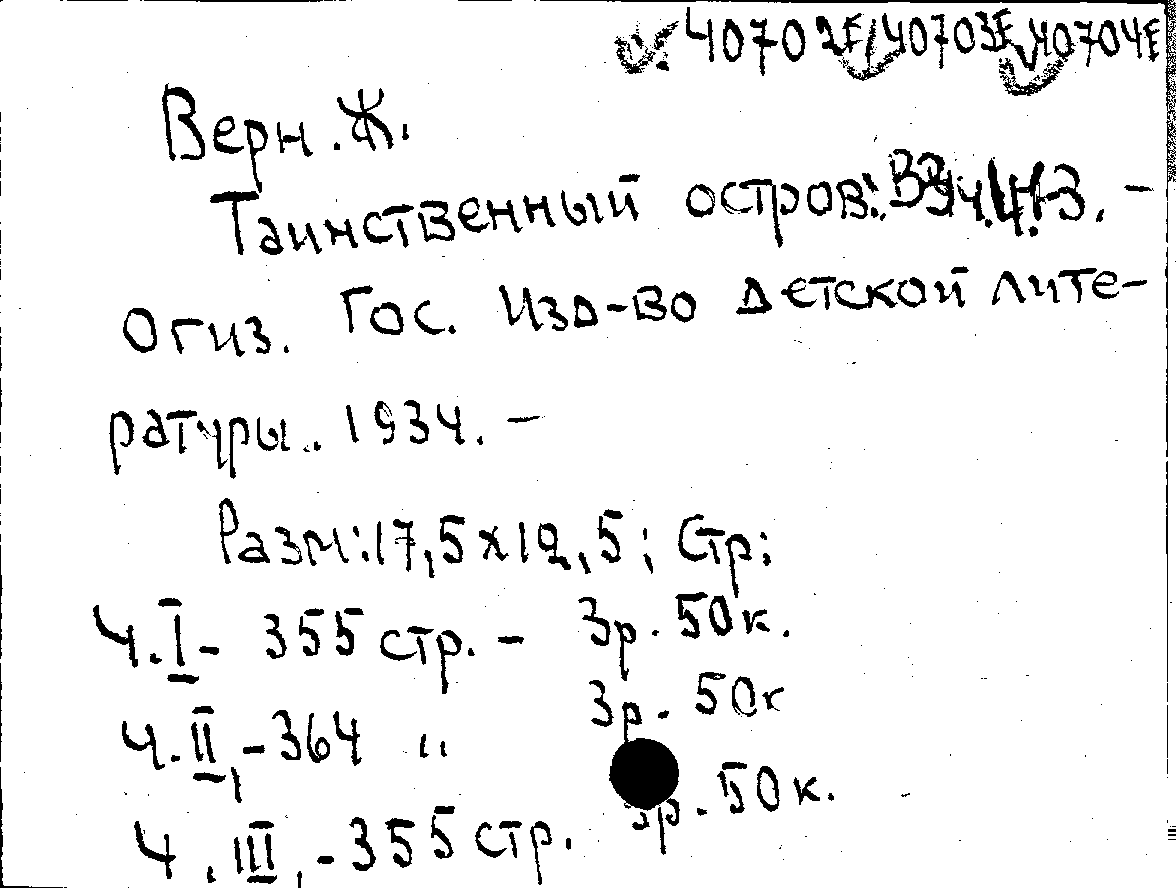 40702Е, 40703Е, 40704Е
Верн. Ж.
Таинственный остров: В 3 ч. Ч. 1-3. –
Огиз. Гос. Изд-во детской лите-
ратуры.. 1934. –
Разм: 17,5x12,5; Стр:
Ч. I - 355 стр. - 3р. 50к.
Ч. II, - 364 " 3р. 50к
Ч. III, - 355 стр. 3р. 50к.